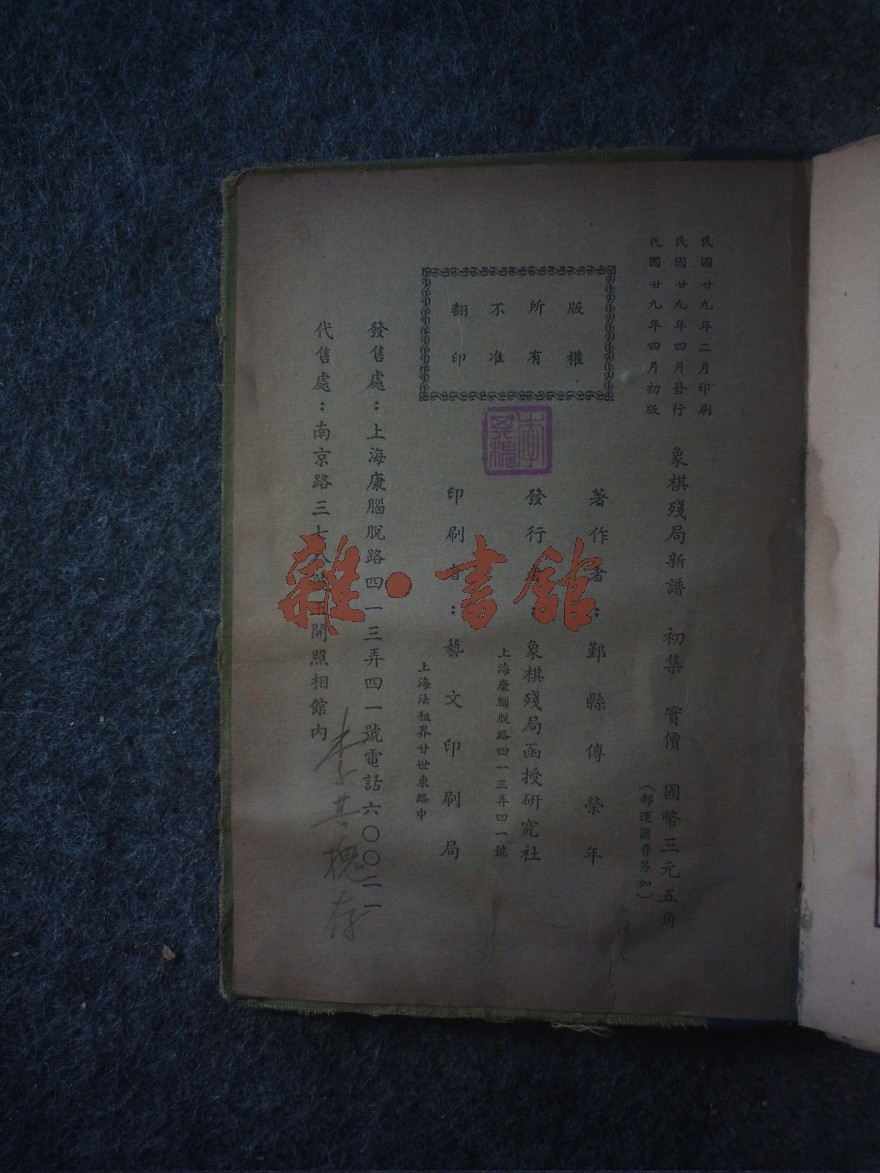 民國廿九年二月印刷
民國廿九年四月發行
民國廿九年四月初版
象棋殘局新譜 初集 實價 國幣三元五角
(郵運滙費另加)
版權
所有
不准
翻印
著作者：鄞縣傅榮年
發行 象棋殘局函授研究社
上海康腦脫路四一三弄四一號
印刷者：藝文印刷局
上海法租界甘世東路中
發售處：上海康腦脫路四一三弄四一號電話六〇〇二一
代售處：南京路三七 開照相館內
李其槐存
雜·書館